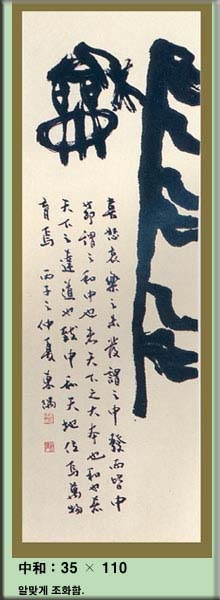 中
龢
喜怒哀樂之未發謂之中發而皆中
節謂之和中也者天下之大本也和也者
天下之達道也致中和天地位焉萬物
育焉 丙子之仲夏 東
中和 : 35 × 110
알맞게 조화함.